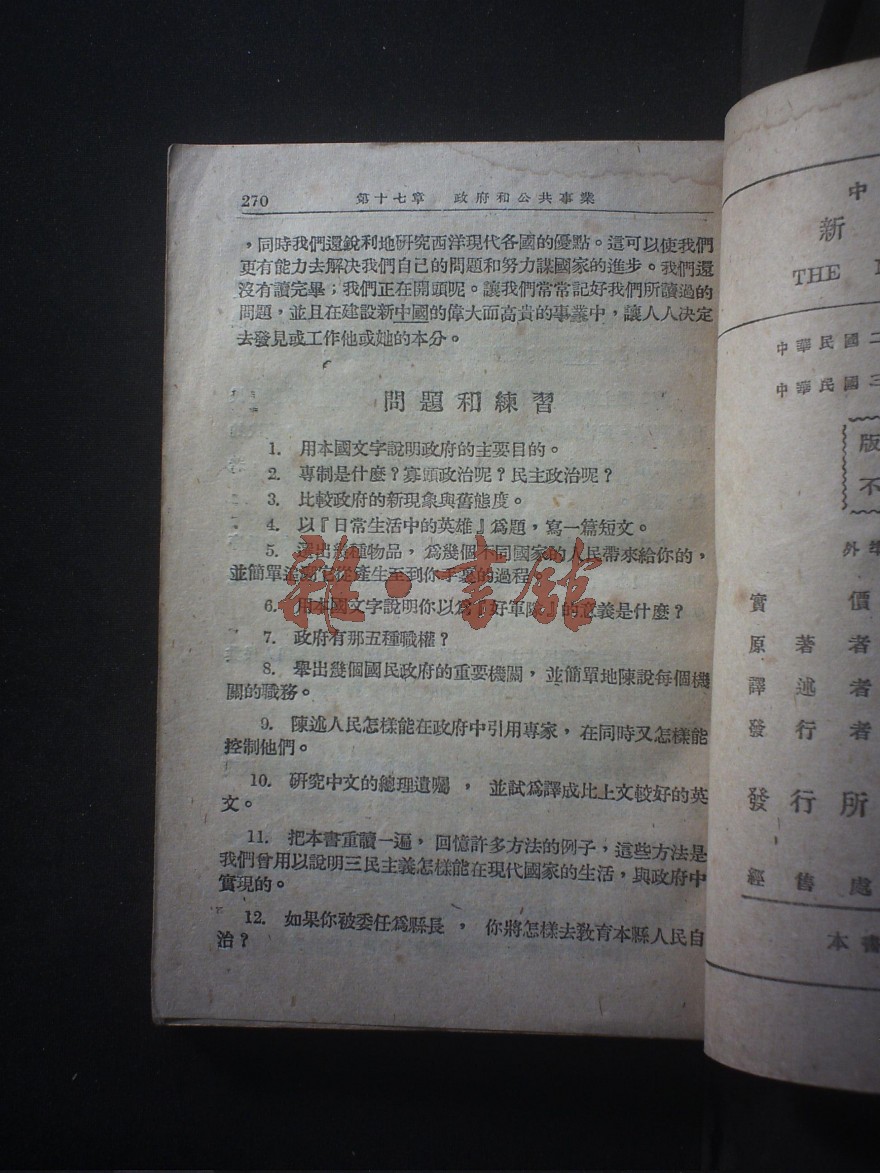 270 第十七章 政府和公共事業
，同時我們還銳利地研究西洋現代各國的優點。這可以使我們
更有能力去解决我們自已的問題和努力謀國家的進步。我們還
沒有讀完畢；我們正在開頭呢。讓我們常常記好我們所讀過的
問題，並且在建設新中國的偉大而高貴的事業中，讓人人决定
去發見或工作他或她的本分。
問題和練習
1. 用本國文字說明政府的主要目的。
2. 專制是什麼？寡頭政治呢？民主政治呢？
3. 比較政府的新現象與舊態度。
4. 以『日常生活中的英雄』爲題，寫一篇短文。
5. 選出幾種物品，爲幾個不同國家的人民帶來給你的，
並簡單追溯它從產生至到你手裏的過程
6. 用本國文字說明你以爲『好軍隊』的意義是什麼？
7. 政府有那五種職權？
8. 舉出幾個國民政府的重要機關，並簡單地陳說每個機
關的職務。
9. 陳述人民怎樣能在政府中引用專家，在同時又怎樣能
控制他們。
10. 研究中文的總理遺囑，並試爲譯成比上文較好的英
文。
11. 把本書重讀一遍，回憶許多方法的例子，這些方法是
我們曾用以說明三民主義怎樣能在現代國家的生活，與政府中
實現的。
12. 如果你被委任爲縣長，你將怎樣去敎育本縣人民自
治？
雜·書館
中
新
THE
中華民國二
中華民國三
版
不
外埠
實價
原著者
譯述者
發行者
發行所
經售處
本書